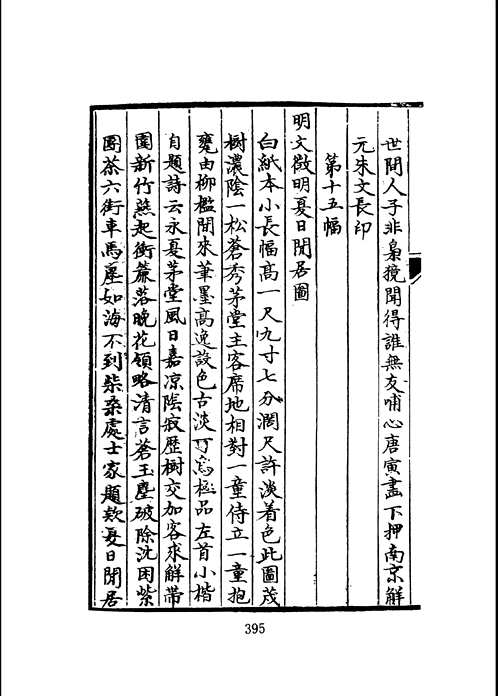 世間人子非梟獍聞得誰無友哺心唐寅畫下押南京解
元朱文長印
第十五幅
明文徵明夏日閒居圖
白紙本小長幅高一尺九寸七分濶尺許淡着色此圖茂
樹濃陰一松蒼秀茅堂主客席地相對一童侍立一童抱
甕由柳檻間來筆墨高逸設色古淡可為極品左首小楷
自題詩云永夏茅堂風日嘉凉陰寂歴樹交加客來解帶
圍新竹燕起衝簾落晚花領略清言蒼玉麈破除沈困紫
團茶六街車馬塵如海不到柴桑處士家題款夏日閒居
395